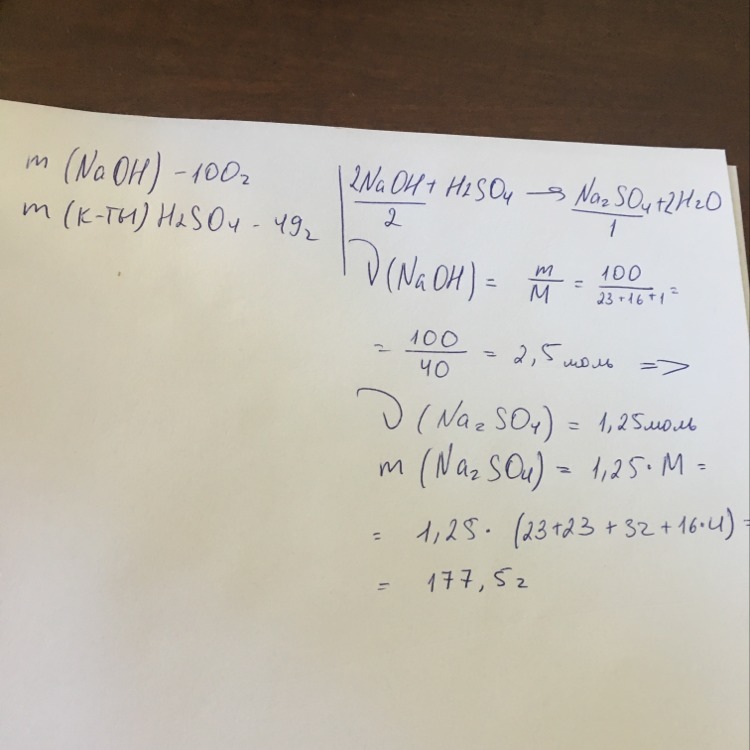 m (NaOH) - 100г
m (к-ты) H2SO4 - 49г
2NaOH + H2SO4 → Na2SO4 + 2H2O
2 1
ν(NaOH) = m/M = 100/23+16+1 =
= 100/40 = 2,5 моль =>
ν(Na2SO4) = 1,25 моль
m (Na2SO4) = 1,25 · M =
= 1,25 · (23+23+32+16·4) =
= 177,5г